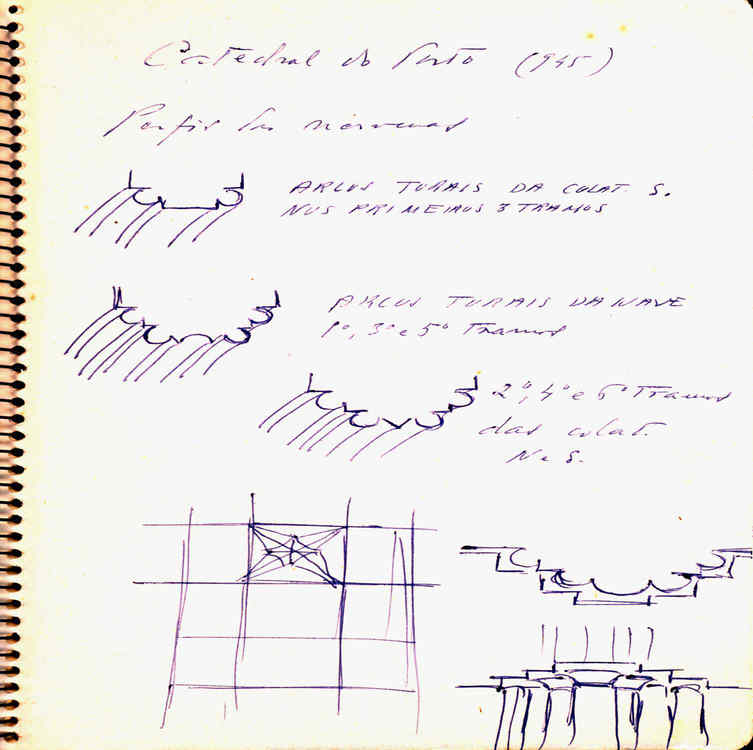 Catedral do Porto (945)
Perfis das nervuras
ARCOS TORAIS DA COLAT. S.
NOS PRIMEIROS 3 TRAMOS
ARCOS TORAIS DA NAVE
1º, 3º e 5º Tramos
2º, 4º e 6º Tramos
das colat.
N e S.